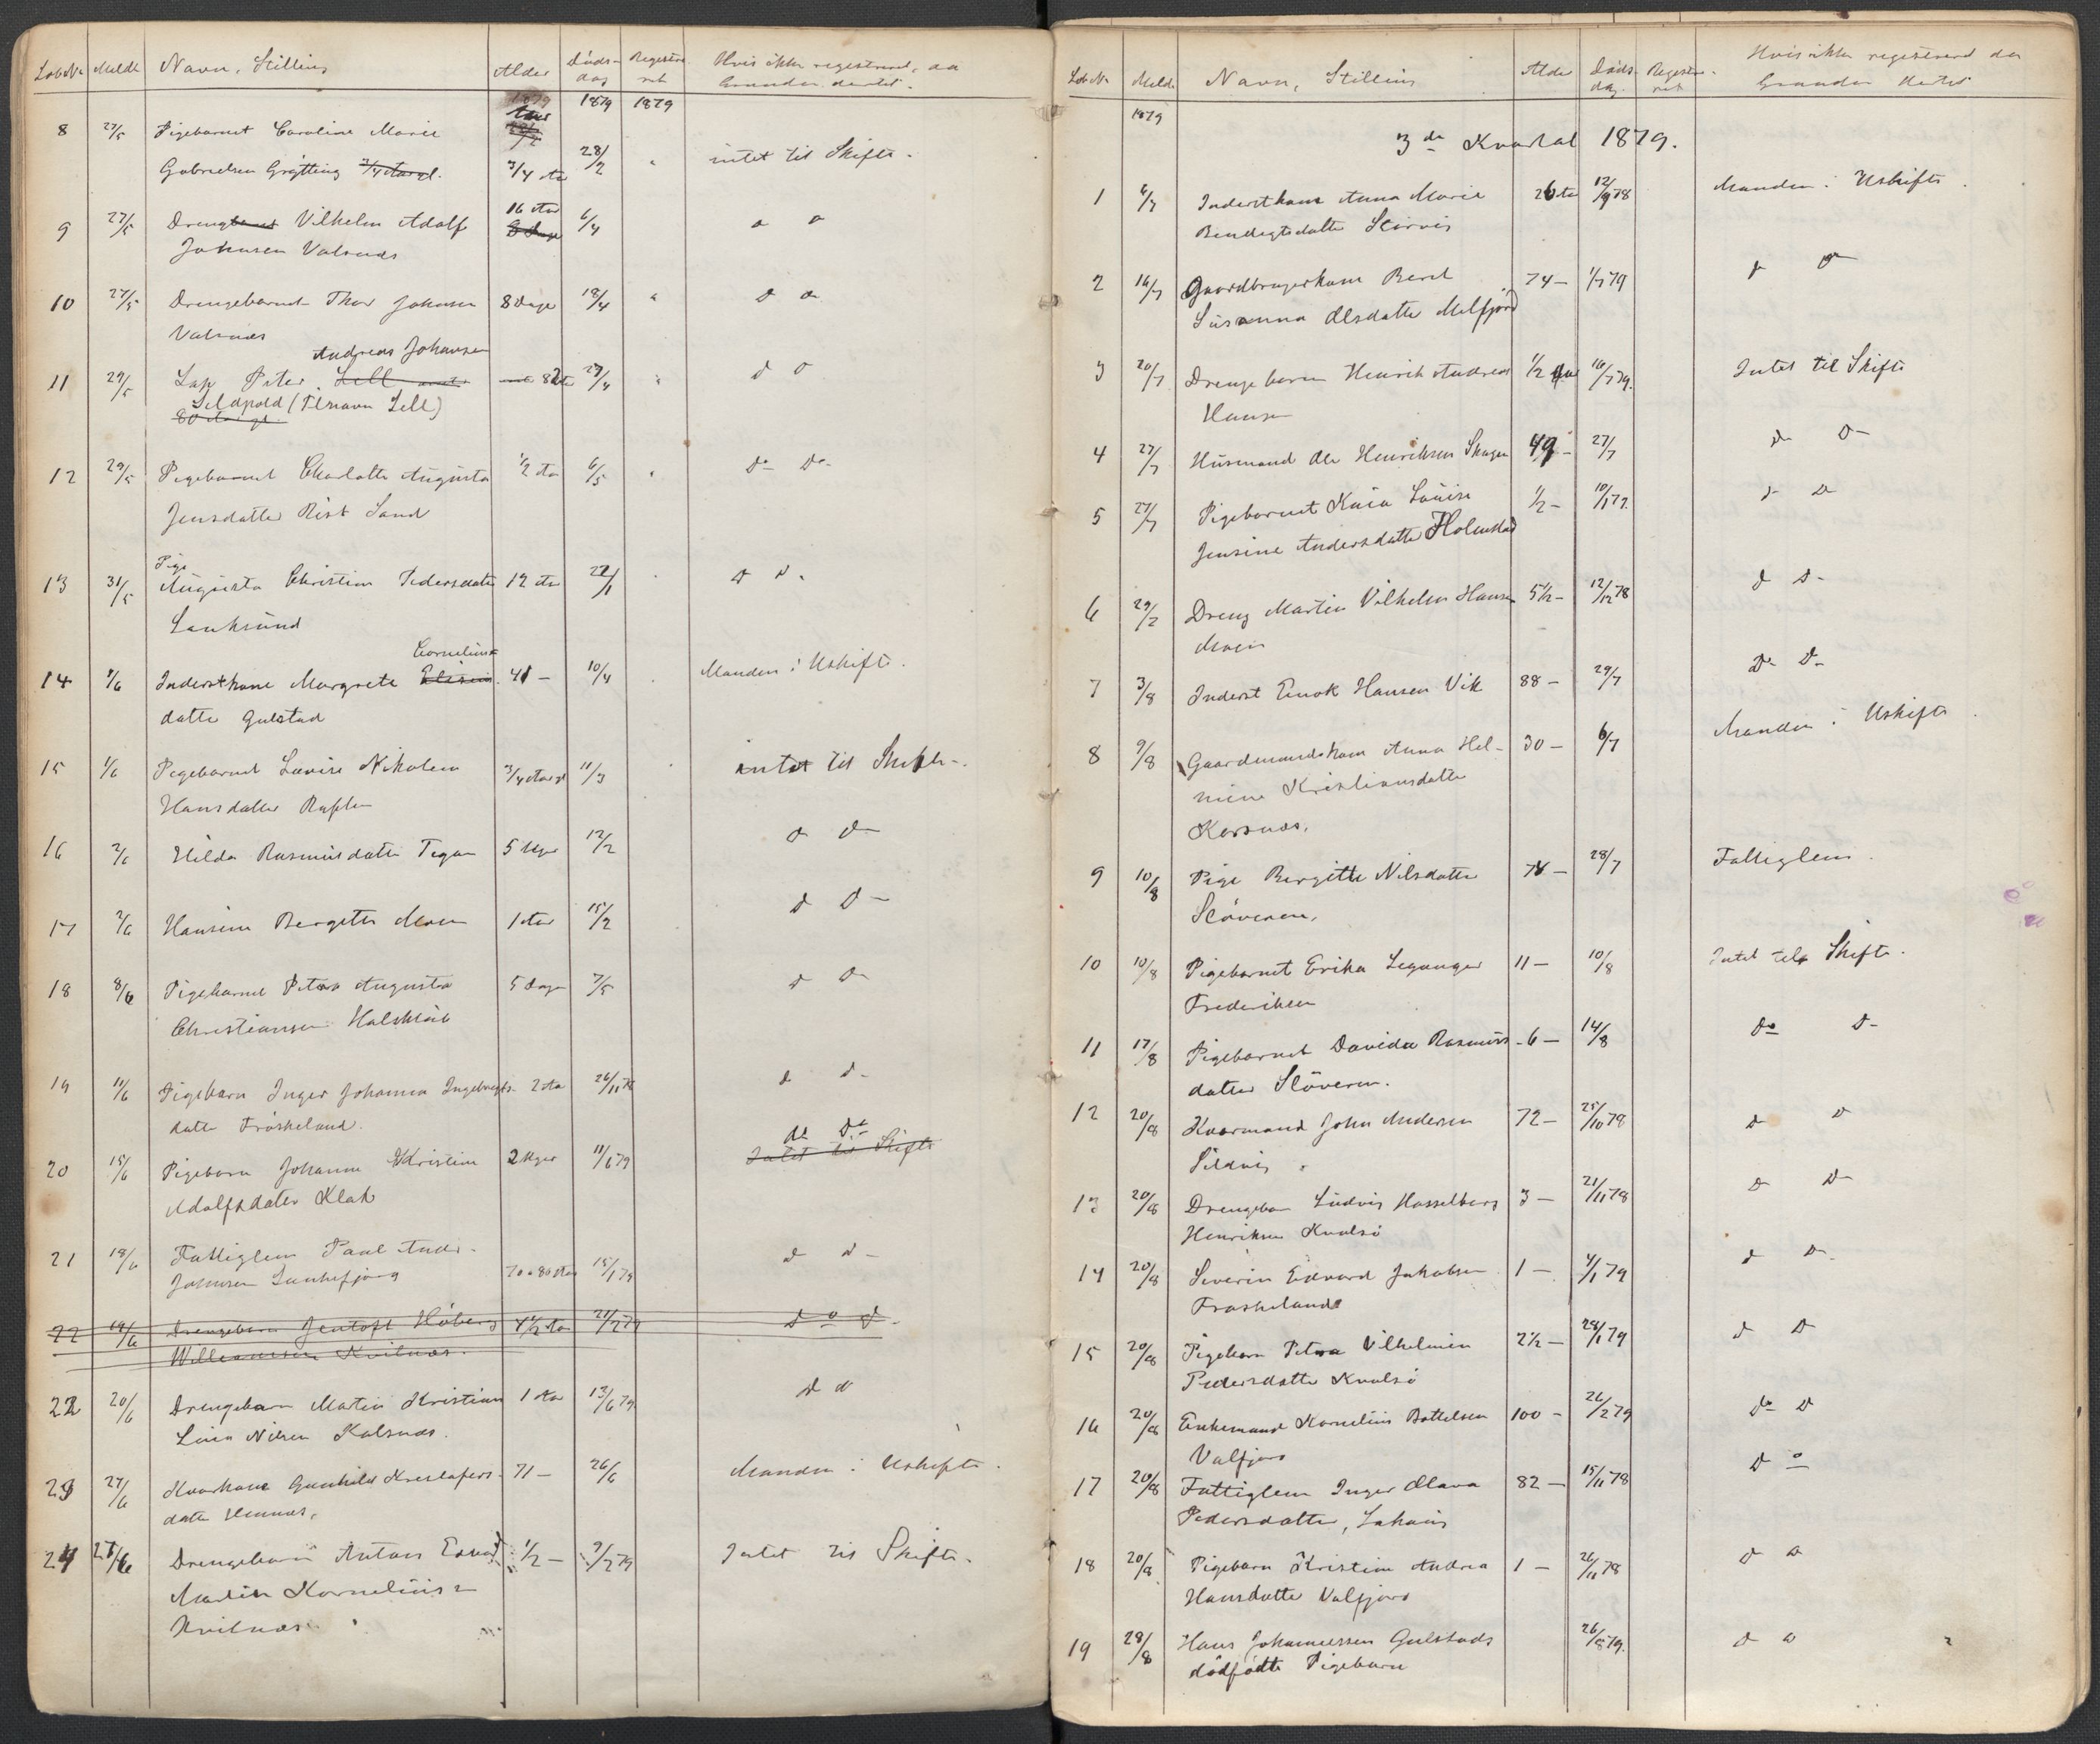 Løb No Meldt Navn, Stilling Alder Døds- dag Registre- ret Hvis ikke registreret, da Grunden dertil.
1879 1879 1879
8 27/5 Pigebarnet Caroline Marie
Gabrielsen Grøtting 3/4 Aar 28/2 " intet til Skifte.
9 27/5 Drengbarnet Vilhelm Adolf 16 Aar 6/4 do do
Johansen Valnæs 8 Dage
10 27/5 Drengebarnet Thor Johansen 8 Dage 18/4 " do do
Valnæs
Andreas Johansen
11 29/5 Lap Peter Sell 82 Aar 29/4 " do do
Seldpold (Tilnavn Sell)
12 29/5 Pigebarnet Charlotte Augusta 1/2 Aar 6/5 " do do
Jensdatter Rist Sand
Pige
13 31/5 Augusta Christine Pedersdatter 12 Aar 22/1 do do
Lanksund
Cornelius
14 1/6 Inderstkone Margrete 41 - 10/4 Manden i Uskifte.
datter Gulstad
15 1/6 Pigebarnet Lovise Nikoline 3/4 Aar gl 11/3 intet til Skifte.
Hansdatter
16 2/6 Hilda Rasmusdatter 5 Uger 12/2 do do
17 2/6 Hansine Bergete Moen 1 Aar 15/2 do do
18 8/6 Pigebarnet Petra Augusta 5 Dage 7/5 do do
Christiansen
19 11/6 Pigebarn Inger Johanna Ingebrigts- 2 Aar 26/11 78 do do
datter Frøskeland.
20 15/6 Pigebarn Johanne Kristine 2 Uger 11/6 79 do do
Intet til Skifte
Adolfsdatter Klak
21 18/6 Fattiglem Paul Andr.
Johnsen 70 a 80 Aar 15/1 79 do do
22 19/6 Drengebarn Jentoft Høberg 4 1/2 Aar 21/2 79 do do
Williamsen Kvitnæs.
22 20/6 Drengebarn Martin Kristian 1 Aar 13/6 79 do do
Nilsen Kalsnæs.
23 27/6 Kaarkone Gunhild Kristofers- 71 - 26/6 Manden i Uskifte.
datter Hennæs.
24 27/6 Drengebarn Antons Edvard 1/2 - 9/2 79 Intet til Skifte.
Martin Kornelius
Kvitnæs
Løb No Meldt Navn, Stilling Alder Døds- dag. Registre- ret Hvis ikke registreret da Grunden dertil
1879
3de Kvartal 1879.
1 6/7 Inderstkone Anna Marie 26 Aar 12/9 78 Manden i Uskifte.
Bendigtsdatter
2 16/7 Gaardbrugerkone Beret 74 - 1/7 79 do do
Susanna Olsdatter Melfjord
3 20/7 Drengebarn Henrik Andreas 1/2 Aar 16/7 79. Intet til Skifte
Hansen
4 27/7 Husmand Ole Henriksen Skagen 49 - 27/7 do do
5 27/7 Pigebarnet Kaia Lovise 1/2 - 10/1 79. do do
Jensine Andersdatter Holmstad
6 29/7 Dreng Martin Vilhelm Hansen 5 1/2 - 12/12 78 do do
Moen
7 3/8 Inderst Enok Hansen Vik 88 - 29/7 do do
8 9/8 Gaardmandskone Anna Hel- 30 - 6/7 Manden i Uskifte.
mine Kristiansdatter
Korsnæs.
9 10/8 Pige Bergitte Nilsdatter 74 - 28/7 Fattiglem.
Sløveren.
10 10/8 Pigebarnet Erika Leganger 11 - 10/8 Intet til Skifte.
Frederiksen
11 17/8 Pigebarnet Davida Rasmus- 6 - 14/8 do do
datter Sløveren.
12 20/8 Kaarmand John Andersen 72 - 25/10 78 do do
Sildvig
13 20/8 Drengebarn Ludvig Hasselberg 3 - 21/11 78 do do
Henriksen Kvalsø
14 20/8 Severin Edvard Jakobsen 1 - 4/1 79 do do
Frøskeland
15 20/8 Pigebarn Petra Vilhelmine 2 1/2 - 28/1 79 do do
Pedersdatter Kvalsø
16 20/8 Enkemand Kornelius Bottelsen 100 - 26/2 79 do do
Valfjord
17 20/8 Fattiglem Inger Olava 82 - 15/11 78 do
Pedersdatter,
18 20/8 Pigebarn Kristine Andrea 1 - 26/11 78 do do
Hansdatter Valfjord
19 28/8 Hans Johannessen Gulstads 26/8 79. do do
dødfødte Pigebarn